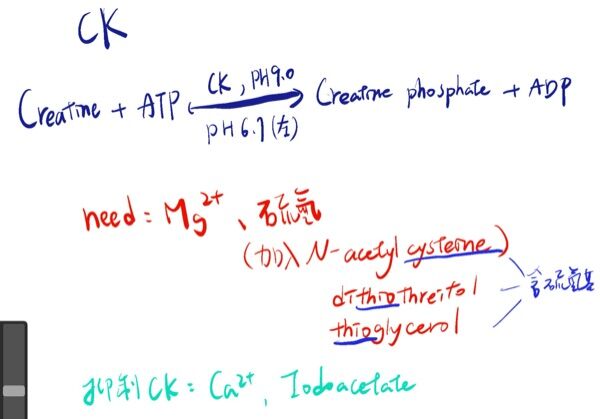 CK
Creatine + ATP CK, PH9.0 Creatine phosphate + ADP
PH6.7(左)
need: Mg2+、硫氫
(加入 N-acetyl cysteine)
dithiothreitol 含硫氫基
thioglycerol
抑制CK: Ca2+, Iodoacetate